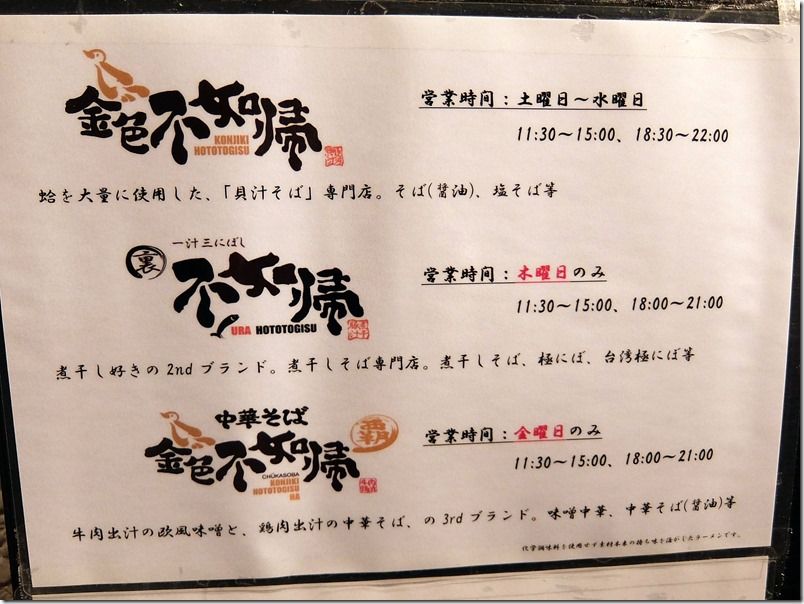 金色不如帰
KONJIKI
HOTOTOGISU
営業時間：土曜日～水曜日
11:30～15:00、18:30～22:00
蛤を大量に使用した、「貝汁そば」専門店。そば(醤油)、塩そば等
裏
一汁三にぼし
不如帰
URA HOTOTOGISU
営業時間：木曜日のみ
11:30～15:00、18:00～21:00
煮干し好きの2ndブランド。煮干しそば専門店。煮干しそば、極にぼ、台湾極にぼ等
中華そば
金色不如帰
覇
CHUKASOBA
KONJIKI
HOTOTOGISU
HA
営業時間：金曜日のみ
11:30～15:00、18:00～21:00
牛肉出汁の欧風味噌と、鶏肉出汁の中華そば、の3rdブランド。味噌中華、中華そば(醤油)等
化学調味料を使用せず素材本来の持ち味を活かしたラーメンです。